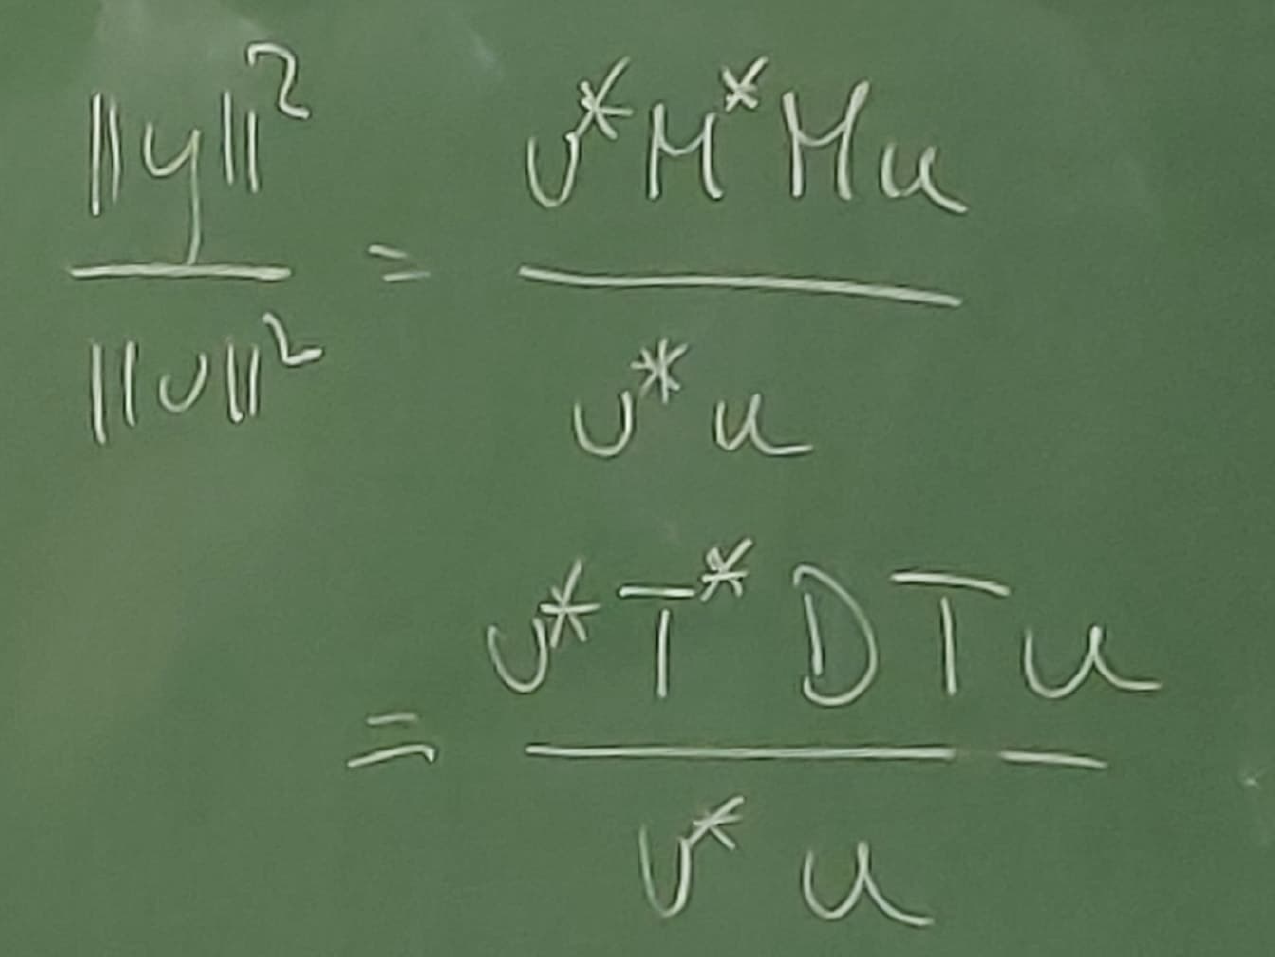 ||y||² / ||u||² = u* M* M u / u* u
= u* T* D T u / u* u